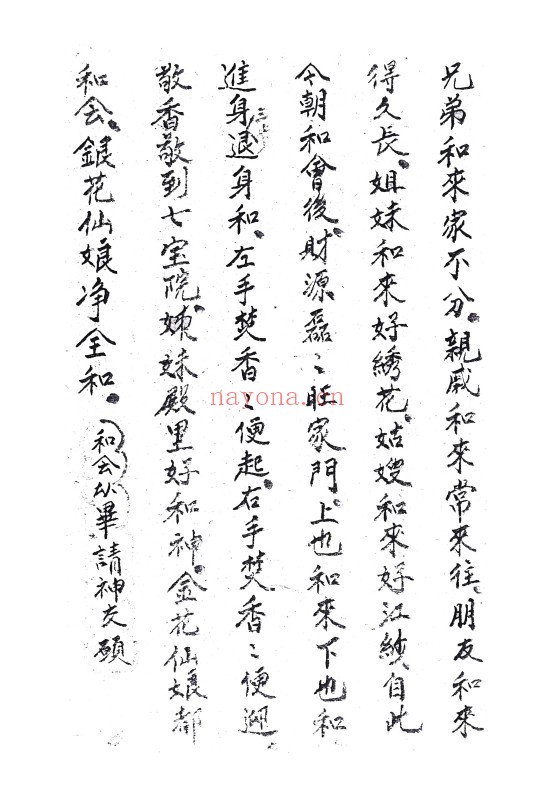 兄弟和來家不分。親戚和來常來往。朋友和來
得久長。姐妹和來好綉花。姑嫂和來好江紗。自此
今朝和會後。財源磊〻旺家門。上也和來下也和
進身退身和。左手焚香〻便起。右手焚香〻便迎
敬香敬到七宝院。姊妹殿里好和神。金花仙娘都
和会。銀花仙娘净全和。
和会畢請神交願
nayona.cn